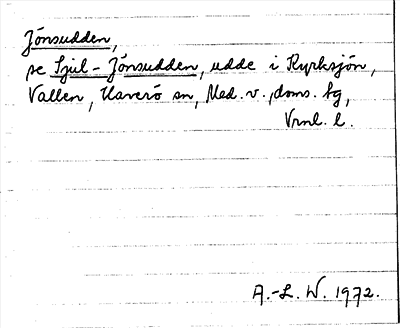 Jönsudden,
se Sjul-Jönsudden, udde i Kyrksjön,
Vallen, Haverö sn, Med. v., doms. fg,
Vrnl. l.
A.-L. W. 1972.